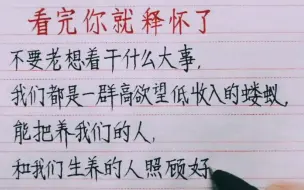 看完你就释怀了
不要老想着干什么大事,
我们都是一群高欲望低收入的蝼蚁,
能把养我们的人,
和我们生养的人照顾好